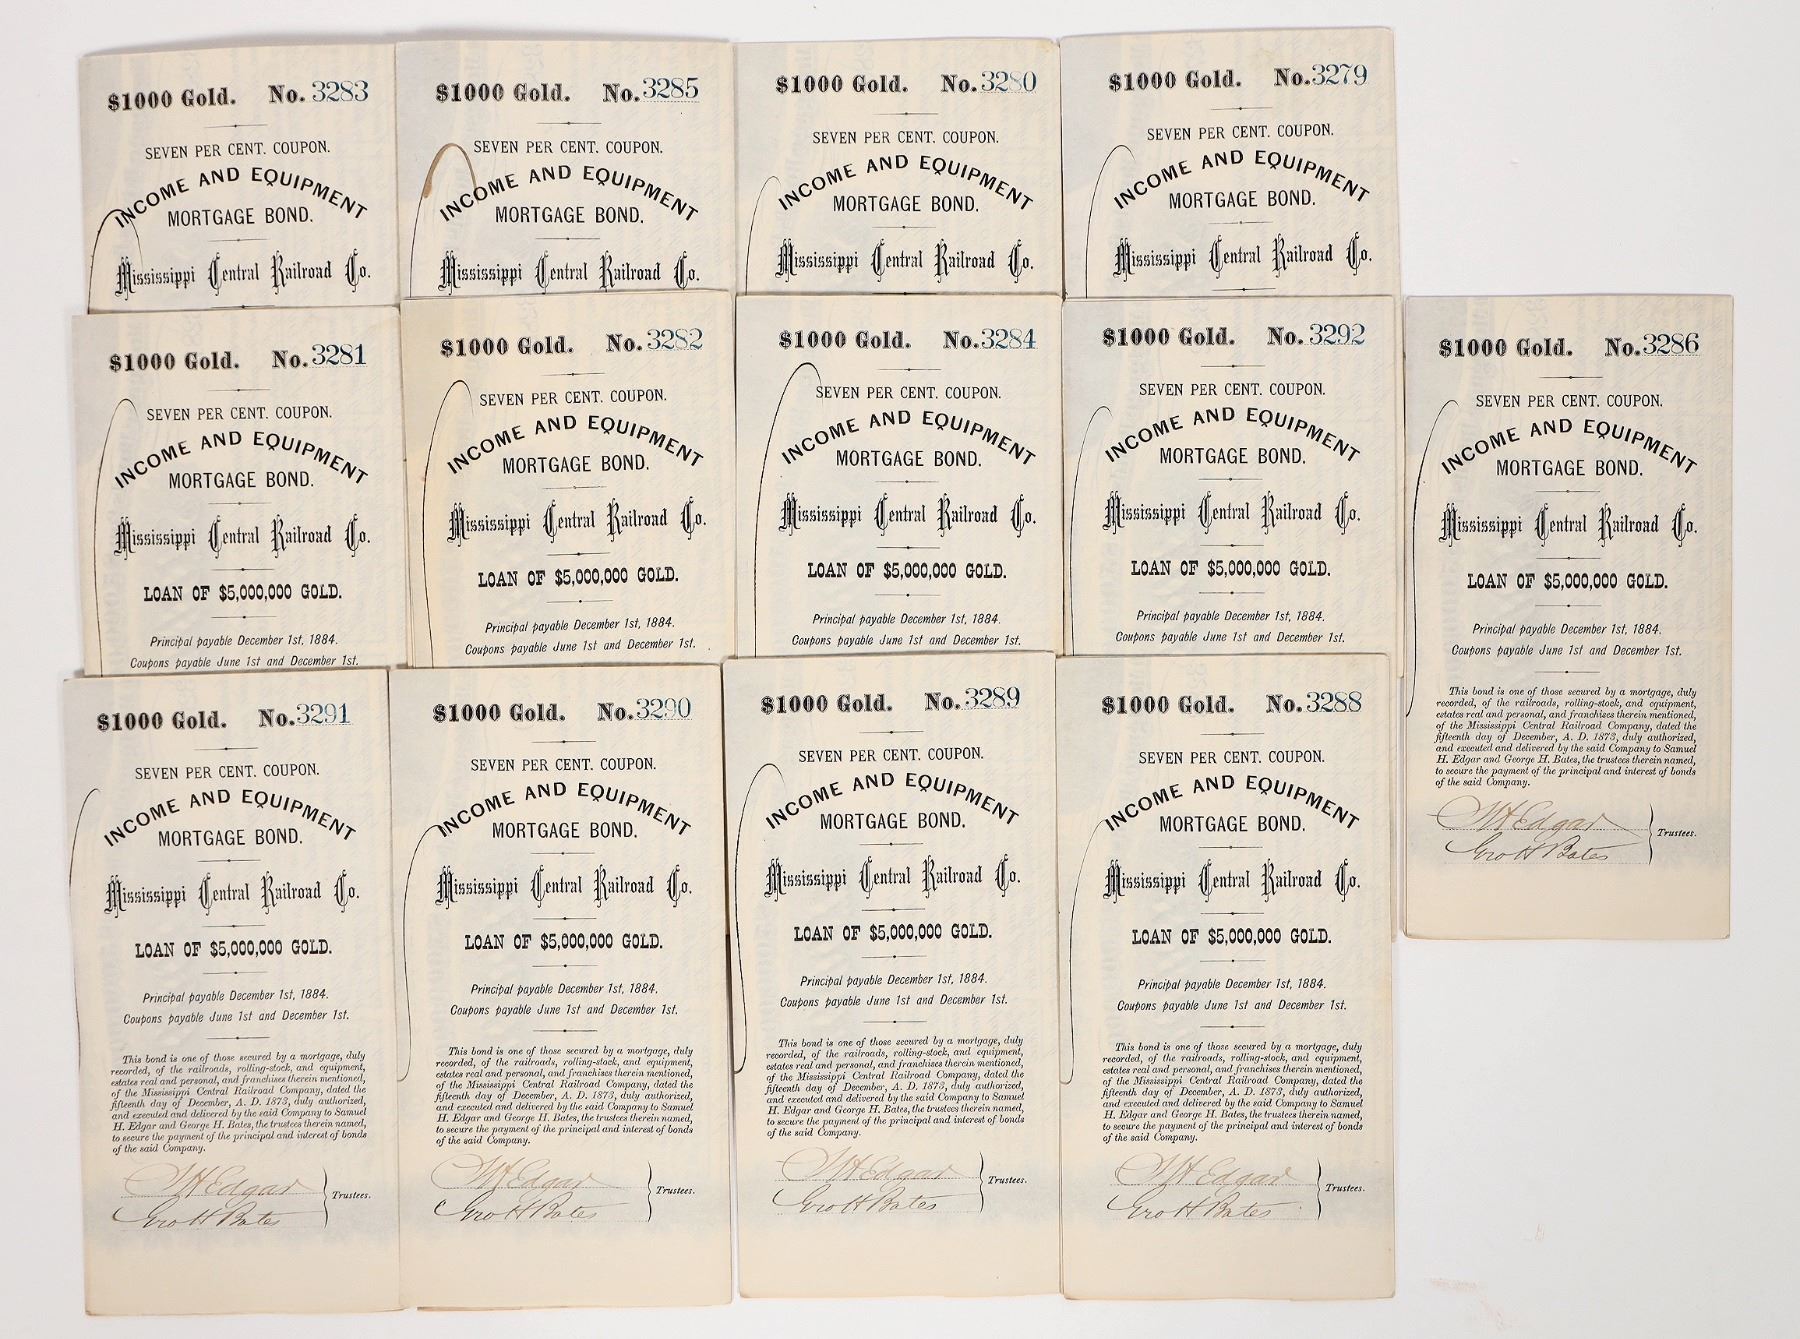 $1000 Gold. No. 3283
SEVEN PER CENT. COUPON.
INCOME AND EQUIPMENT
MORTGAGE BOND.
Mississippi Central Railroad Co.
$1000 Gold. No. 3285
SEVEN PER CENT. COUPON.
INCOME AND EQUIPMENT
MORTGAGE BOND.
Mississippi Central Railroad Co.
$1000 Gold. No. 3280
SEVEN PER CENT. COUPON.
INCOME AND EQUIPMENT
MORTGAGE BOND.
Mississippi Central Railroad Co.
$1000 Gold. No. 3279
SEVEN PER CENT. COUPON.
INCOME AND EQUIPMENT
MORTGAGE BOND.
Mississippi Central Railroad Co.
$1000 Gold. No. 3281
SEVEN PER CENT. COUPON.
INCOME AND EQUIPMENT
MORTGAGE BOND.
Mississippi Central Railroad Co.
LOAN OF $5,000,000 GOLD.
Principal payable December 1st, 1884.
Coupons payable June 1st and December 1st.
$1000 Gold. No. 3282
SEVEN PER CENT. COUPON.
INCOME AND EQUIPMENT
MORTGAGE BOND.
Mississippi Central Railroad Co.
LOAN OF $5,000,000 GOLD.
Principal payable December 1st, 1884.
Coupons payable June 1st and December 1st.
$1000 Gold. No. 3284
SEVEN PER CENT. COUPON.
INCOME AND EQUIPMENT
MORTGAGE BOND.
Mississippi Central Railroad Co.
LOAN OF $5,000,000 GOLD.
Principal payable December 1st, 1884.
Coupons payable June 1st and December 1st.
$1000 Gold. No. 3292
SEVEN PER CENT. COUPON.
INCOME AND EQUIPMENT
MORTGAGE BOND.
Mississippi Central Railroad Co.
LOAN OF $5,000,000 GOLD.
Principal payable December 1st, 1884.
Coupons payable June 1st and December 1st.
$1000 Gold. No. 3286
SEVEN PER CENT. COUPON.
INCOME AND EQUIPMENT
MORTGAGE BOND.
Mississippi Central Railroad Co.
LOAN OF $5,000,000 GOLD.
Principal payable December 1st, 1884.
Coupons payable June 1st and December 1st.
This bond is one of those secured by a mortgage, duly
recorded, of the railroads, rolling-stock, and equipment,
estates real and personal, and franchises therein mentioned,
of the Mississippi Central Railroad Company, dated the
fifteenth day of December, A. D. 1873, duly authorized,
and executed and delivered by the said Company to Samuel
H. Edgar and George H. Bates, the trustees therein named,
to secure the payment of the principal and interest of bonds
of the said Company.
S H Edgar
Geo H Bates
Trustees.
$1000 Gold. No. 3291
SEVEN PER CENT. COUPON.
INCOME AND EQUIPMENT
MORTGAGE BOND.
Mississippi Central Railroad Co.
LOAN OF $5,000,000 GOLD.
Principal payable December 1st, 1884.
Coupons payable June 1st and December 1st.
This bond is one of those secured by a mortgage, duly
recorded, of the railroads, rolling-stock, and equipment,
estates real and personal, and franchises therein mentioned,
of the Mississippi Central Railroad Company, dated the
fifteenth day of December, A. D. 1873, duly authorized,
and executed and delivered by the said Company to Samuel
H. Edgar and George H. Bates, the trustees therein named,
to secure the payment of the principal and interest of bonds
of the said Company.
S H Edgar
Geo H Bates
Trustees.
$1000 Gold. No. 3290
SEVEN PER CENT. COUPON.
INCOME AND EQUIPMENT
MORTGAGE BOND.
Mississippi Central Railroad Co.
LOAN OF $5,000,000 GOLD.
Principal payable December 1st, 1884.
Coupons payable June 1st and December 1st.
This bond is one of those secured by a mortgage, duly
recorded, of the railroads, rolling-stock, and equipment,
estates real and personal, and franchises therein mentioned,
of the Mississippi Central Railroad Company, dated the
fifteenth day of December, A. D. 1873, duly authorized,
and executed and delivered by the said Company to Samuel
H. Edgar and George H. Bates, the trustees therein named,
to secure the payment of the principal and interest of bonds
of the said Company.
S H Edgar
Geo H Bates
Trustees.
$1000 Gold. No. 3289
SEVEN PER CENT. COUPON.
INCOME AND EQUIPMENT
MORTGAGE BOND.
Mississippi Central Railroad Co.
LOAN OF $5,000,000 GOLD.
Principal payable December 1st, 1884.
Coupons payable June 1st and December 1st.
This bond is one of those secured by a mortgage, duly
recorded, of the railroads, rolling-stock, and equipment,
estates real and personal, and franchises therein mentioned,
of the Mississippi Central Railroad Company, dated the
fifteenth day of December, A. D. 1873, duly authorized,
and executed and delivered by the said Company to Samuel
H. Edgar and George H. Bates, the trustees therein named,
to secure the payment of the principal and interest of bonds
of the said Company.
S H Edgar
Geo H Bates
Trustees.
$1000 Gold. No. 3288
SEVEN PER CENT. COUPON.
INCOME AND EQUIPMENT
MORTGAGE BOND.
Mississippi Central Railroad Co.
LOAN OF $5,000,000 GOLD.
Principal payable December 1st, 1884.
Coupons payable June 1st and December 1st.
This bond is one of those secured by a mortgage, duly
recorded, of the railroads, rolling-stock, and equipment,
estates real and personal, and franchises therein mentioned,
of the Mississippi Central Railroad Company, dated the
fifteenth day of December, A. D. 1873, duly authorized,
and executed and delivered by the said Company to Samuel
H. Edgar and George H. Bates, the trustees therein named,
to secure the payment of the principal and interest of bonds
of the said Company.
S H Edgar
Geo H Bates
Trustees.